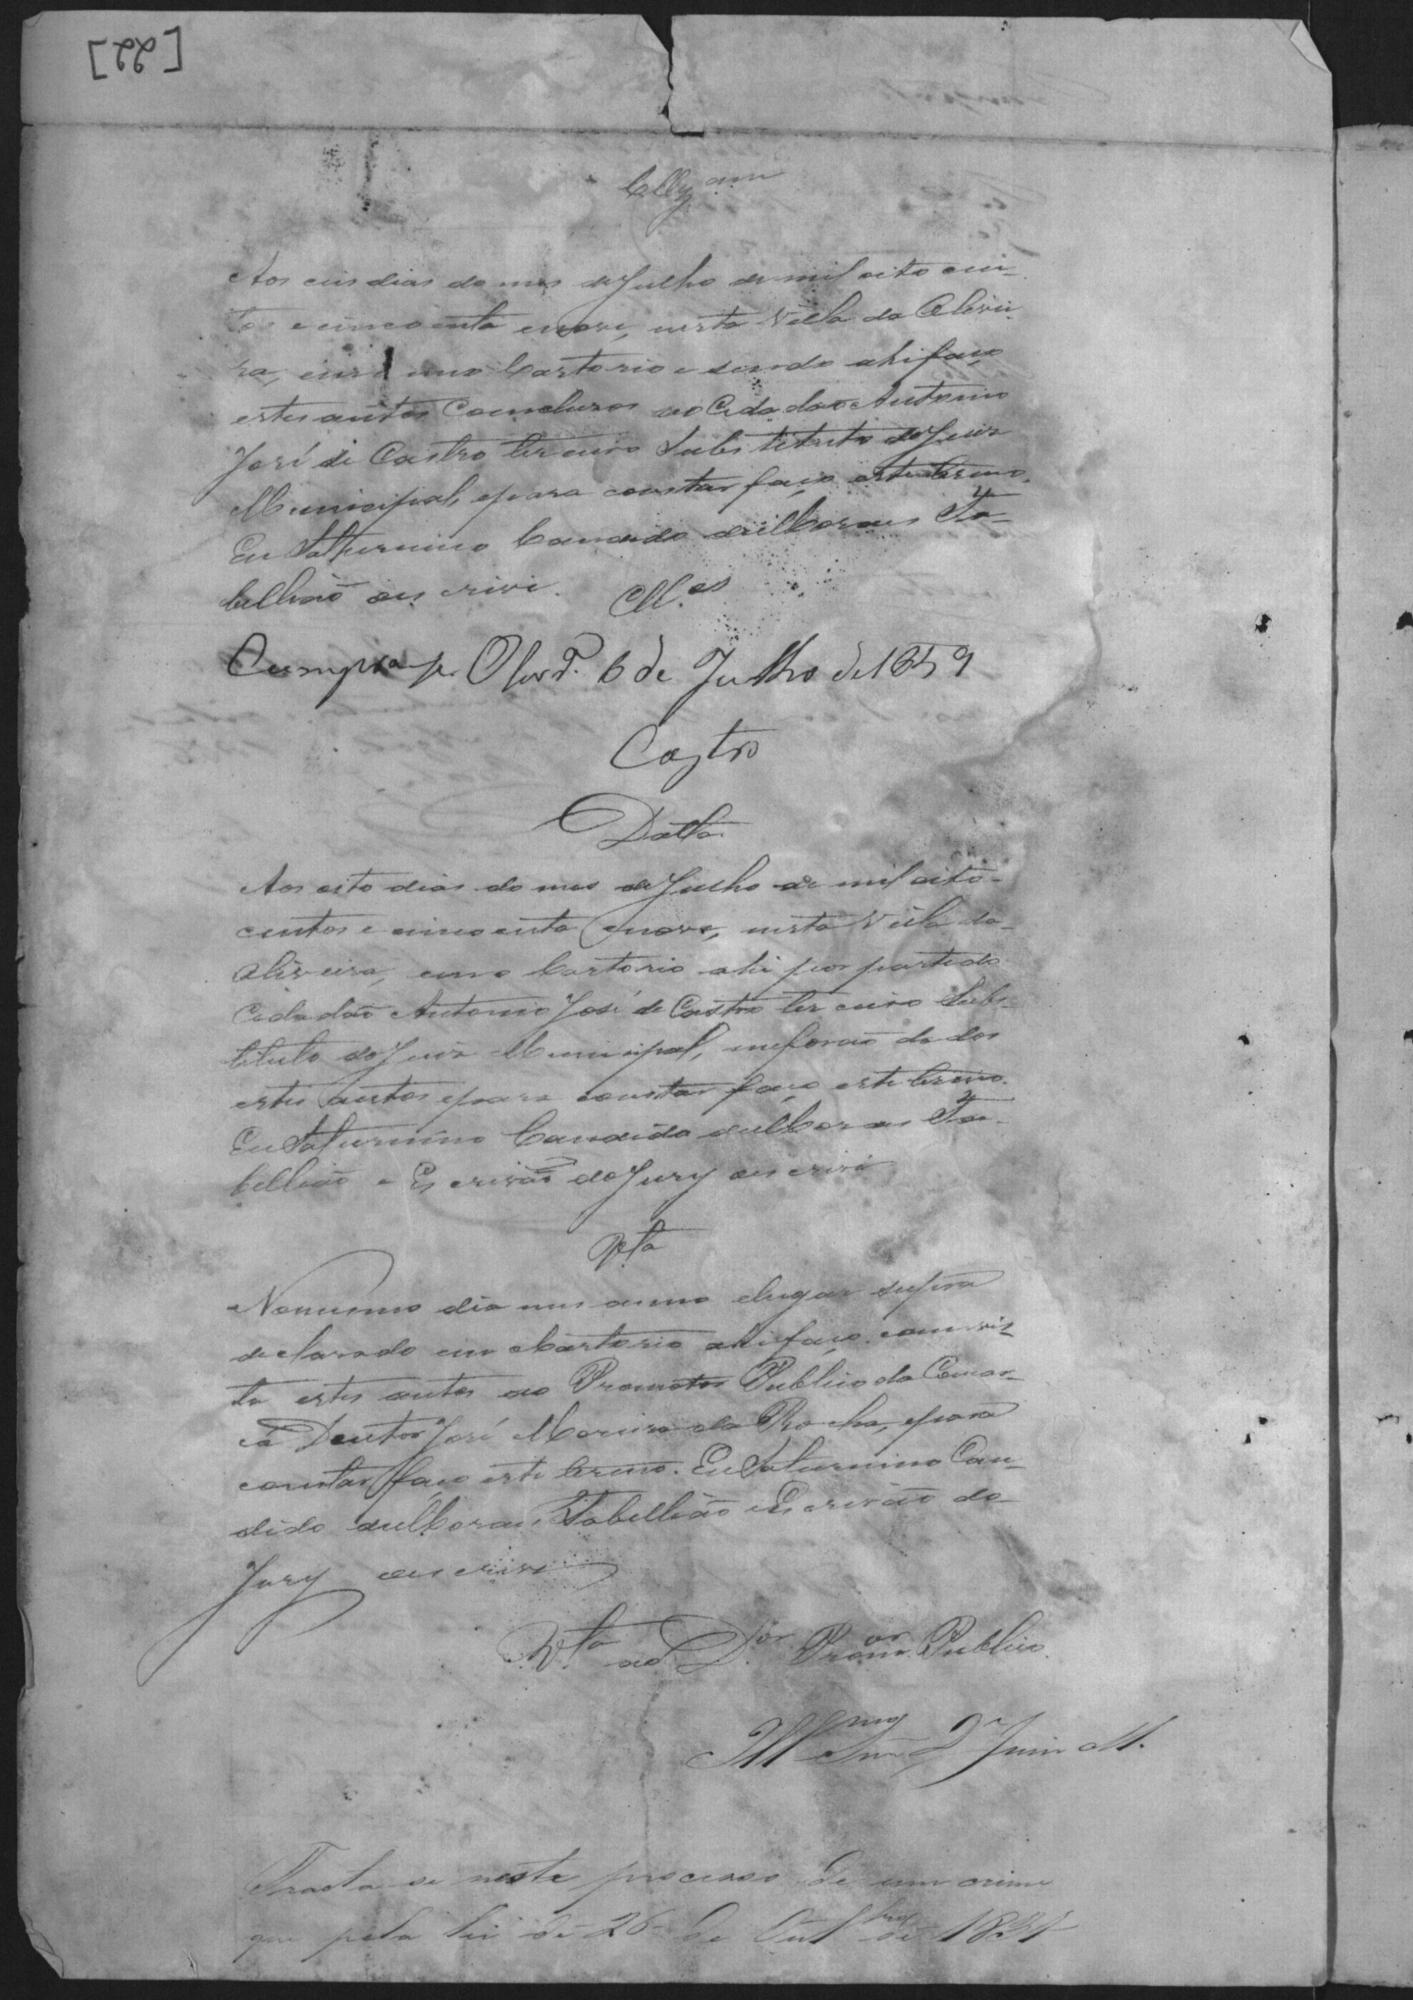 [22]
Aos seis dias do mes de Julho de mil oito cen-
tos e cincoenta e nove, nesta Villa da Olivei
ra, em meu Cartorio e sendo ahi faço
estes autos Comclusos ao Cidadão Antonio
José de Castro terceiro Substituto do Juiz
Municipal, e para constar faço este termo.
Eu Saturnino Candido de Moraes Ta-
bellião o escrivi.
Cls.os
Cumpra-se Olivr.a 6 de Julho de 1859
Castro
Datta
Aos oito dias do mes de Julho de mil oito-
centos e cincoenta e nove, nesta Villa da
Oliveira, em o Cartorio ahi por parte do
Cidadão Antonio José de Castro terceiro Subs-
tituto do Juiz Municipal, me forão dados
estes autos e para constar faço este termo.
Eu Saturnino Candido de Moraes Ta-
bellião e Escrivão do Jury o escrivi
V.ta
No mesmo dia mes anno e lugar supra
declarado em o Cartorio ahi faço com vis-
ta estes autos ao Promotor Publico da Comar-
ca Doutor José Moreira da Rocha, e para
constar faço este termo. Eu Saturnino Can-
dido de Moraes Tabellião e Escrivão do
Jury o escrivi
V.ta ao D.or Prom.or Publico.
Ill.mo Snr. D.r Juiz M.
Tracta-se neste processo de um crime
que pela lei de 26 de Outbr.o de 1831